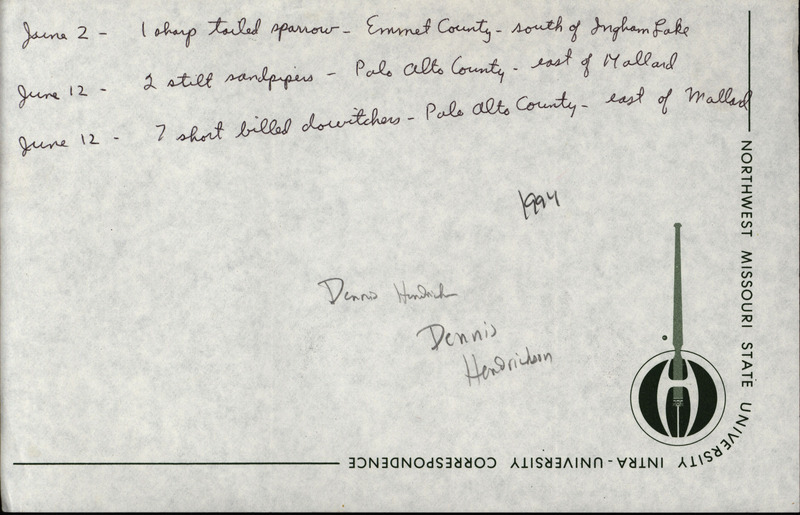 June 2 - 1 sharp tailed sparrow - Emmet County - south of Ingham Lake
June 12 - 2 stilt sandpipers - Palo Alto County - east of Mallard
June 12 - 7 short billed dowitchers - Palo Alto County - east of Mallard
1994
Dennis Hendrick
Dennis
Hendrickson
NORTHWEST MISSOURI STATE UNIVERSITY INTRA-UNIVERSITY CORRESPONDENCE